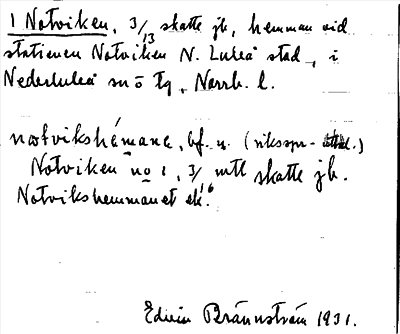 1 Notviken, 3/13 skatte jb, hemman vid
stationen Notviken N. Luleå stad, i
Nederluleå sn o tg, Norrb. l.
notvikshémanə, bf. u. (riksspr.
Notviken no 1, 3/16 mtl skatte jb.
Notvikshemmanet ek.
Edvin Brännström 1931.